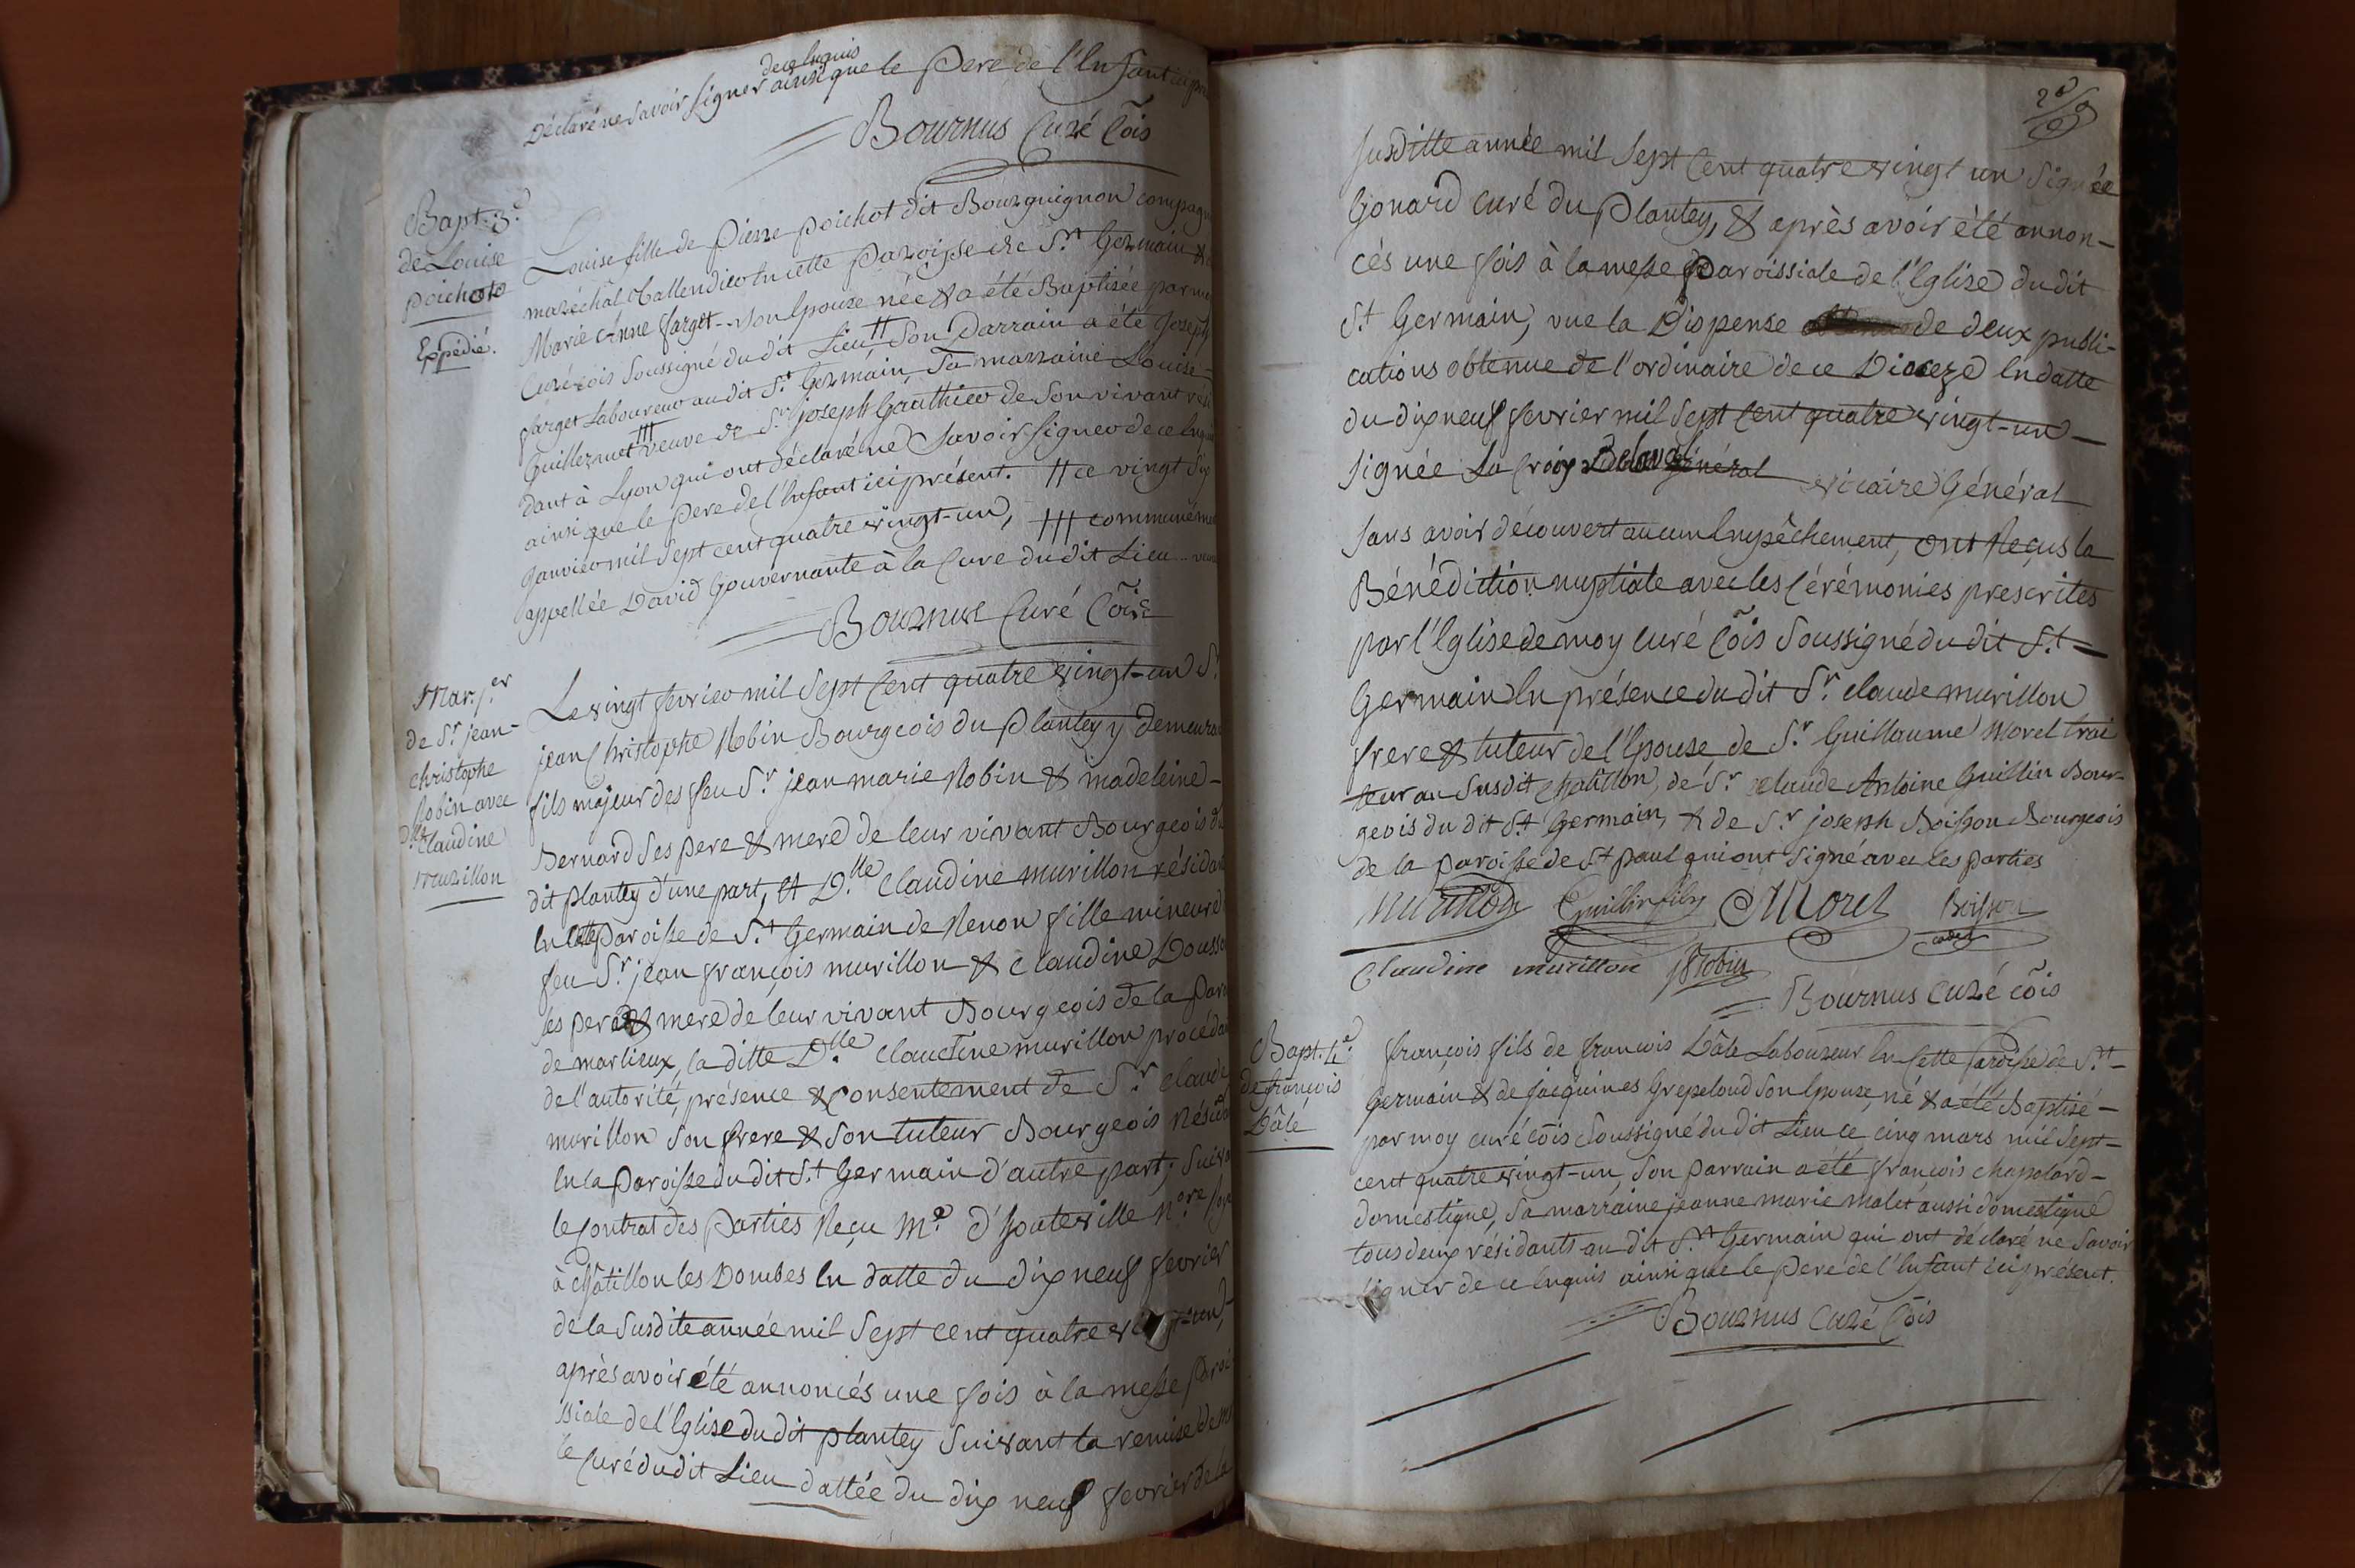 déclaré ne savoir signer ainsi que le Pere de l'Enfant
de ce Enquis
Bournus Curé Cõis
Bapt. 3.e
de Louise
poichot
Expédié.
Louise fille de Pierre poichot dit Bourguignon
maréchal en cette Paroisse de St. Germain &
Marie Anne farget son Epouse née & a été Baptisée par
Curé cõis soussigné du dit Lieu // Son Parrain a été Joseph
farget Laboureur au dit St. Germain, Sa marraine Louise
Guillermet /// veuve de Sr. joseph Gauthier de Son vivant
dant à Lyon qui ont déclaré ne Savoir signer de ce Enquis
ainsi que le Pere de l'Enfant ici présent. // ce vingt Six
Janvier mil Sept cent quatre vingt-un, /// communément
appellée David Gouvernante à la Cure du dit Lieu
Bournus Curé Cõis
Mar. 1.er
de Sr. jean-
christophe
Robin avec
D.lle Claudine
murillon
Le vingt fevrier mil Sept Cent quatre vingt-un Sr.
jean Christophe Robin Bourgeois du Plantey y demeurant
fils majeur des feu Sr. jean marie Robin & madeleine
Bernard Ses pere & mere de leur vivant Bourgeois du
dit plantey d'une part, Et D.lle Claudine murillon résidante
En cette Paroisse de St. Germain de Renon fille mineure de
feu Sr. jean françois murillon & Claudine
ses pere & mere de leur vivant Bourgeois de la
de marlieux, la ditte D.lle Claudine murillon
de l'autorité, présence & Consentement de Sr. Claude
murillon Son frere & Son tuteur Bourgeois
En la Paroisse du dit St. Germain d'autre part; Suivant
le Contrat des Parties Reçu M.e d'houteville N.ore
à châtillon les Dombes En datte du dix neuf fevrier
de la Susdite année mil Sept cent quatre vingt-un,
après avoir été annoncés une fois à la messe Paroi-
ssiale de l'Eglise du dit plantey Suivant la remise de
le Curé du dit Lieu dattée du dix neuf fevrier de la
susditte année mil Sept Cent quatre vingt un signée
Gonard Curé du Plantey, & après avoir été annon-
cés une fois à la messe Paroissiale de l'Eglise du dit
St. Germain, vue la Dispense de deux publi-
cations obtenue de l'ordinaire de ce Dioceze En datte
du dix neuf fevrier mil Sept Cent quatre vingt-un
signée La Croix Delaval Général vicaire Général
Sans avoir découvert aucun Empêchement, ont Reçus la
Bénédiction nuptiale avec les Cérémonies prescrites
par l'Eglise de moy Curé Cõis Soussigné du dit St.
Germain En présence du dit Sr. claude murillon
frere & tuteur de l'Epouse, de Sr. Guillaume Morel trai
teur au Susdit chatillon, de Sr. claude Antoine Guillin Bour-
geois du dit St. Germain, & de Sr. joseph Boisson Bourgeois
de la paroisse de St. paul qui ont Signé avec les parties
murillon Guillin fils Morel Boisson
cadet
Claudine murillon Robin
Bournus Curé cõis
Bapt. 4.e
de françois
Bâlé
françois fils de françois Bâlé Laboureur En Cette Paroisse de St.
Germain & de jacquines Grepeloud Son Epouse, né & a été Baptisé
par moy curé cõis Soussigné du dit Lieu ce cinq mars mil Sept
cent quatre vingt-un, Son parrain a été françois chapolard
domestique, Sa marraine jeanne marie malet aussi domestique
tous deux résidants au dit St. Germain qui ont déclaré ne Savoir
signer de ce Enquis ainsi que le Pere de l'Enfant ici présent.
Bournus Curé Cõis